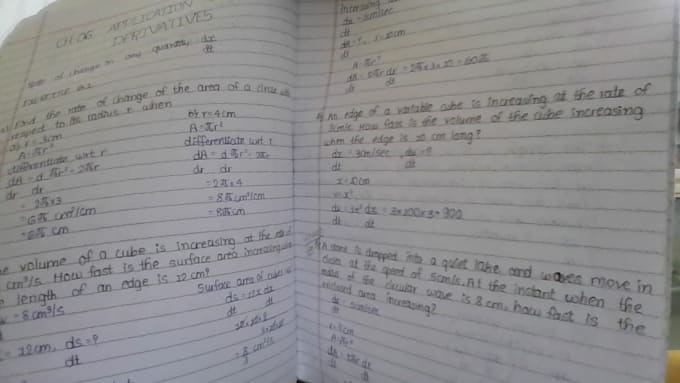 CH.06 APPLICATION
DERIVATIVES
Rate of change in any quantity dx
dt
Exercise 6.1
Find the rate of change of the area of a circle with
respect to its radius r when
a) r = 3cm
A = πr²
differentiate wrt r
dA = d πr² = 2πr
dr dr
= 2π×3
= 6π cm²/cm
= 6π cm
b) r = 4cm
A = πr²
differentiate wrt r
dA = d πr² = 2πr
dr dr
= 2π×4
= 8π cm²/cm
= 8π cm
volume of a cube is increasing at the
cm³/s. How fast is the surface area increasing
length of an edge is 12 cm?
= 8 cm³/s
= 12cm, ds = ?
dt
Surface area of cube
ds = 12x dx
dt dt
= 8 cm²/s
3
increasing
= 3cm/sec
dt
= ?, r = 10cm
dt
A = πr²
dA = 2πr dr = 2π×3×10 = 60π
dt dt
An edge of a variable cube is increasing at the rate of
3cm/s. How fast is the volume of the cube increasing
when the edge is 10 cm long?
dx = 3cm/sec, dv = ?
dt dt
x = 10cm
v = x³
dv = 3x² dx = 3×100×3 = 900
dt dt
A stone is dropped into a quiet lake and waves move in
circles at the speed of 5cm/s. At the instant when the
radius of the circular wave is 8 cm, how fast is the
enclosed area increasing?
dr = 5cm/sec
dt
r = 8cm
A = πr²
dA = 2πr dr
dt dt